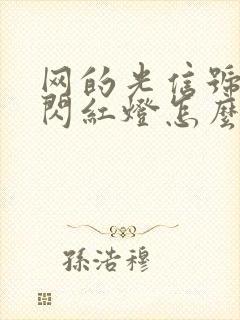 网的光信號
閃紅燈怎麼
孫浩穆